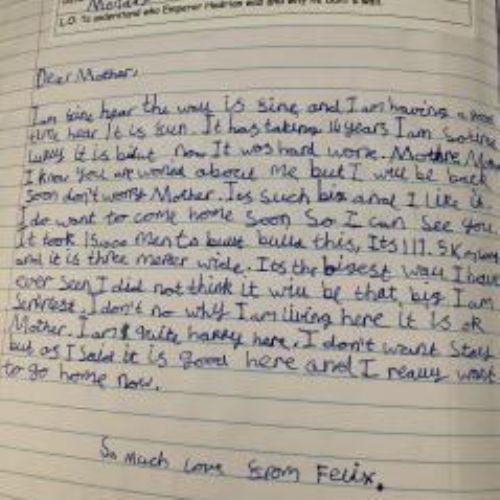 Monday
L.O. To understand who Emperor Hadrian was and why he built a wall.
Dear Mother,
I am fine hear the wall is fine and I am having a good
time hear It is fun. It has taking 16 years I am so
lukey it is bilut now It was hard wore. Mothre
I know you are woried about me but I will be back
Soon don't worry Mother. Its such big and I like it
I do want to come home soon so I can see you.
It took 15000 men to built build this, Its 117.5K
and it is three meater wide. Its the bigest wall I have
ever seen I did not think it will be that big I am
I don't no why I am living here it is ok
Mother. I am quite happy here. I don't want stay
but as I said it is good here and I really want
to go home now.
So much love from Felix.